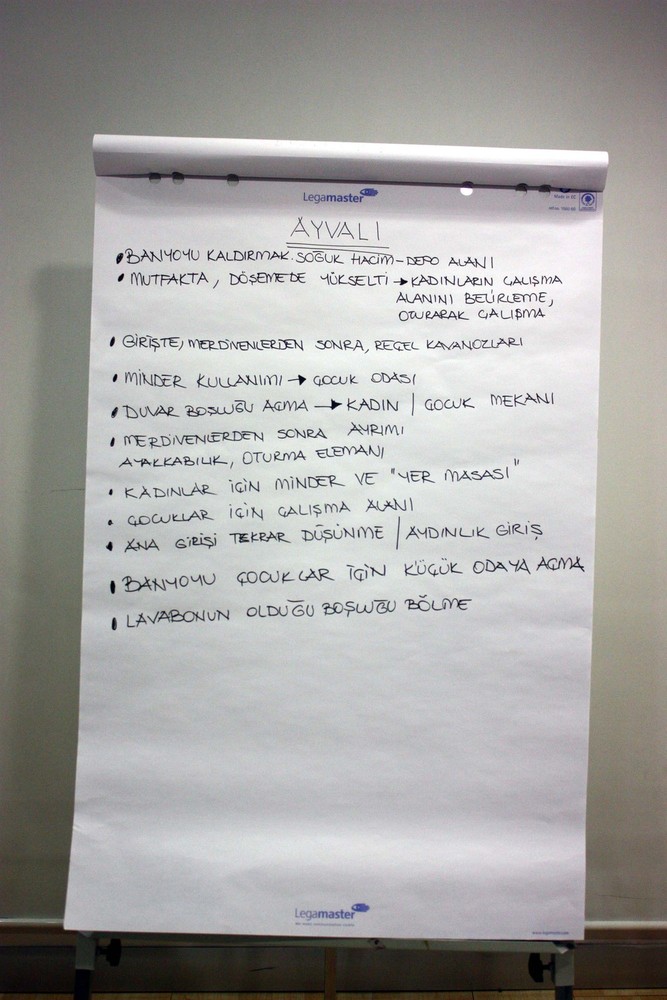 Legamaster
Made in EC
AYVALI
• BANYOYU KALDIRMAK. SOĞUK HACİM - DEPO ALANI
• MUTFAKTA, DÖŞEMEDE YÜKSELTİ → KADINLARIN ÇALIŞMA
ALANINI BELİRLEME,
OTURARAK ÇALIŞMA
• GİRİŞTE, MERDİVENLERDEN SONRA, REÇEL KAVANOZLARI
• MİNDER KULLANIMI → ÇOCUK ODASI
• DUVAR BOŞLUĞU AÇMA → KADIN | ÇOCUK MEKANI
• MERDİVENLERDEN SONRA AYRIMI
AYAKKABILIK, OTURMA ELEMANI
• KADINLAR İÇİN MİNDER VE "YER MASASI"
• ÇOCUKLAR İÇİN ÇALIŞMA ALANI
• ANA GİRİŞİ TEKRAR DÜŞÜNME | AYDINLIK GİRİŞ
• BANYOYU ÇOCUKLAR İÇİN KÜÇÜK ODAYA AÇMA
• LAVABONUN OLDUĞU BOŞLUĞU BÖLME
Legamaster
www.legamaster.com